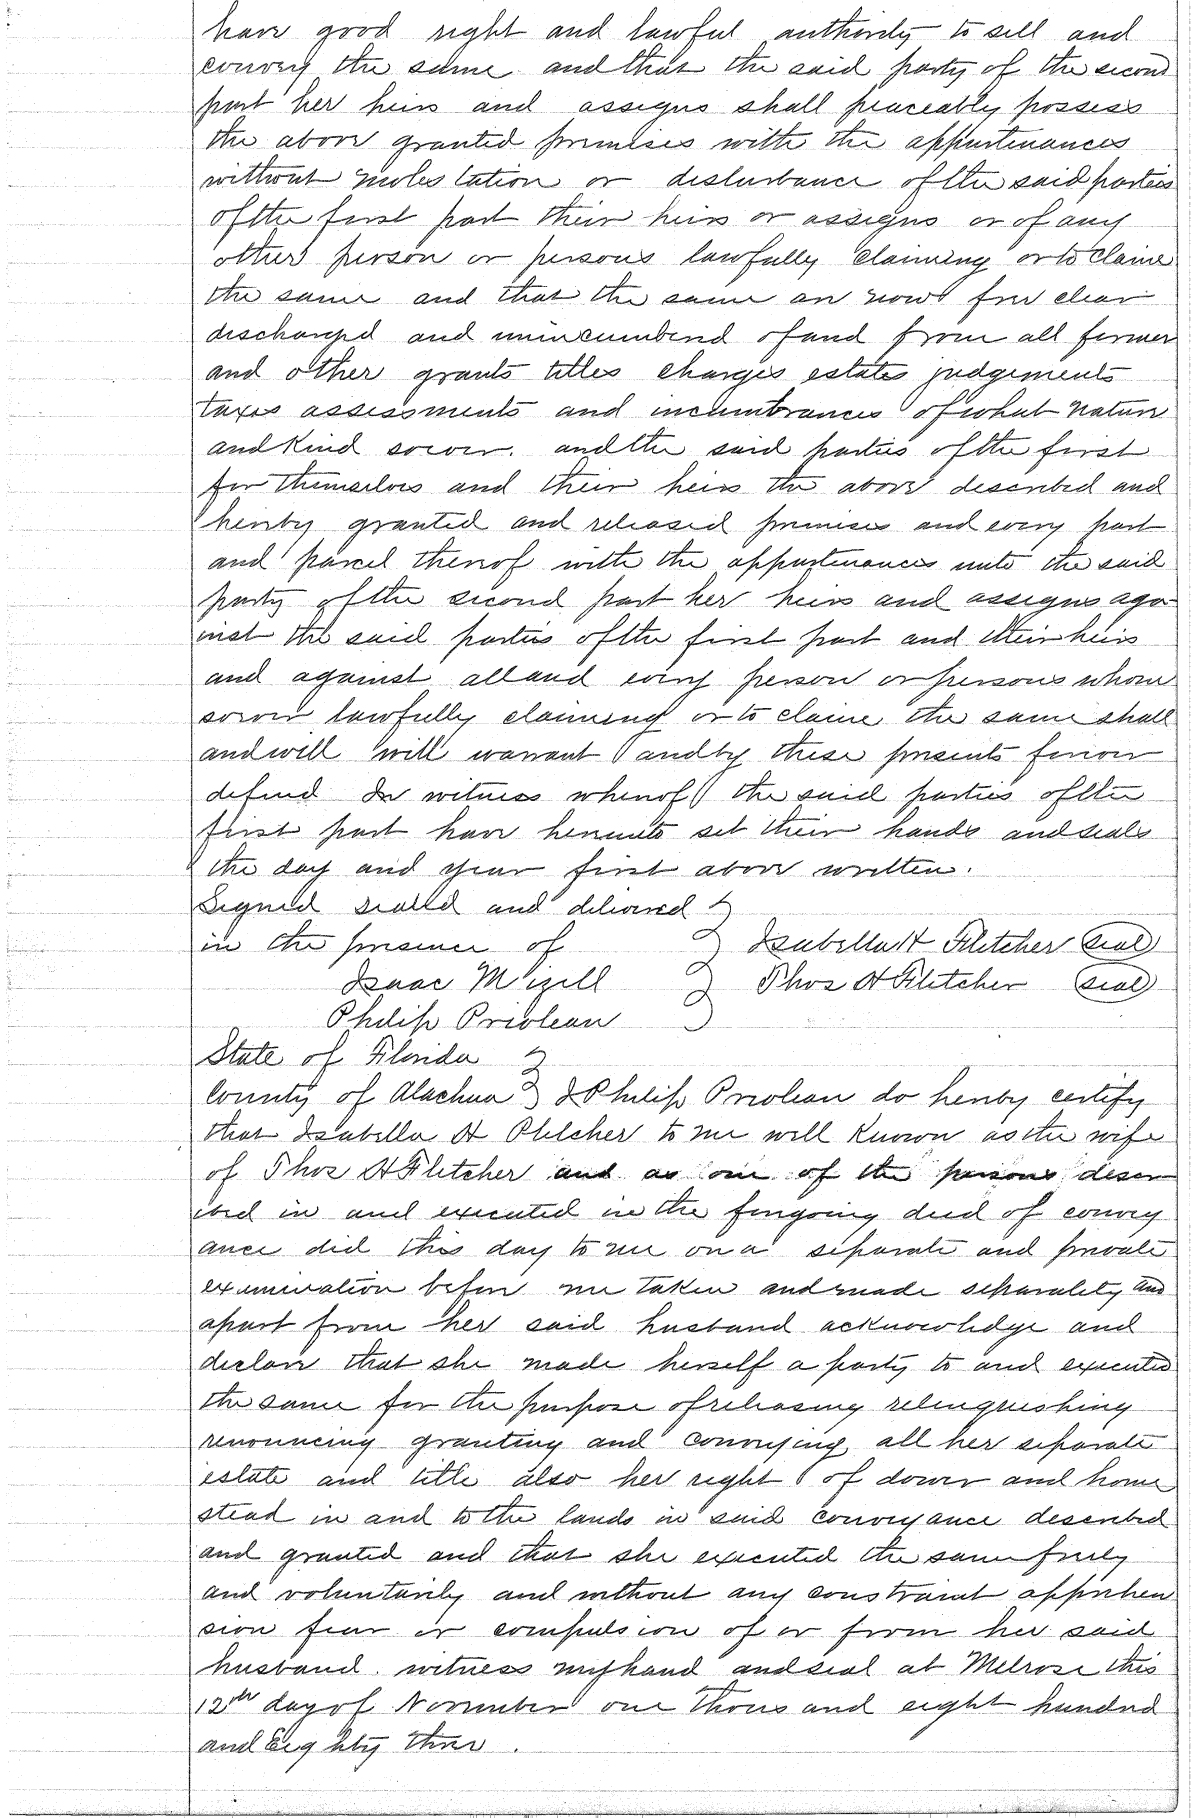 have good right and lawful authority to sell and
convey the same and that the said party of the second
part her heirs and assigns shall peaceably possess
the above granted premises with the appurtenances
without molestation or disturbance of the said parties
of the first part their heirs or assigns or of any
other person or persons lawfully claiming or to claim
the same and that the same are now free clear
discharged and unincumbered of and from all former
and other grants titles charges estates judgements
taxes assessments and incumbrances of what nature
and kind soever. and the said parties of the first
for themselves and their heirs the above described and
hereby granted and released premises and every part
and parcel thereof with the appurtenances unto the said
party of the second part her heirs and assigns aga
inst the said parties of the first part and their heirs
and against all and every person or persons whom
soever lawfully claiming or to claim the same shall
and will will warrant and by these presents forever
defend In witness whereof the said parties of the
first part have hereunto set their hands and seals
the day and year first above written.
Signed sealed and delivered
in the presence of Isabella H Fletcher seal
Isaac Mizell Thos H Fletcher seal
Philip Prioleau
State of Florida
County of Alachua I Philip Prioleau do hereby certify
that Isabella H Fletcher to me well known as the wife
of Thos H Fletcher and as one of the persons descr
ibed in and executed in the foregoing deed of convey
ance did this day to me on a separate and private
examination before me taken and made separately and
apart from her said husband acknowledge and
declare that she made herself a party to and executed
the same for the purpose of releasing relinquishing
renouncing granting and conveying all her separate
estate and title also her right of dower and home
stead in and to the lands in said conveyance described
and granted and that she executed the same freely
and voluntarily and without any constraint apprehen
sion fear or compulsion of or from her said
husband. witness my hand and seal at Melrose this
12th day of November one thousand eight hundred
and Eighty three.